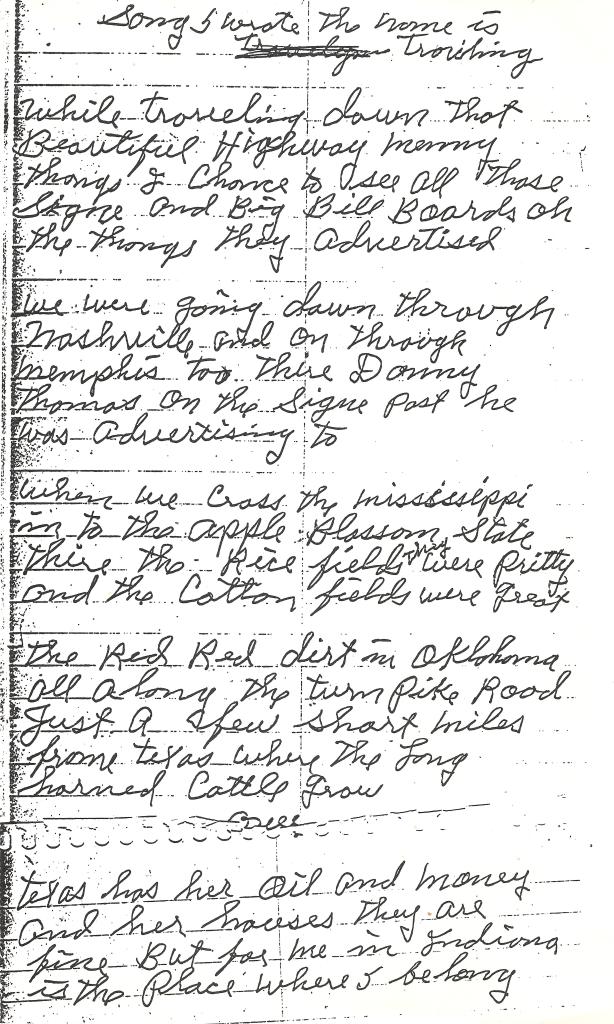 Song I wrote the name is
Troviling
While troveling down that
Beautiful Highway menny
thongs I Chance to see all those
Signe and Big Bill Boards oh
the thongs they advertised
we were going down through
Nashville and on through
memphis too There Donny
Thomas on the Signe post he
was Advertising to
When we Cross the mississippi
in to the apple Blossom State
there the Rice fields they were Pritty
and the Cotton fields were Great
The Red Red dirt in Oklohoma
all along the turn Pike Road
Just A few short miles
frome texas where the Long
horned Cattle Grow
over
texas has her Oil and money
and her houses they are
fine But for me in Indiana
is the Place where I belong